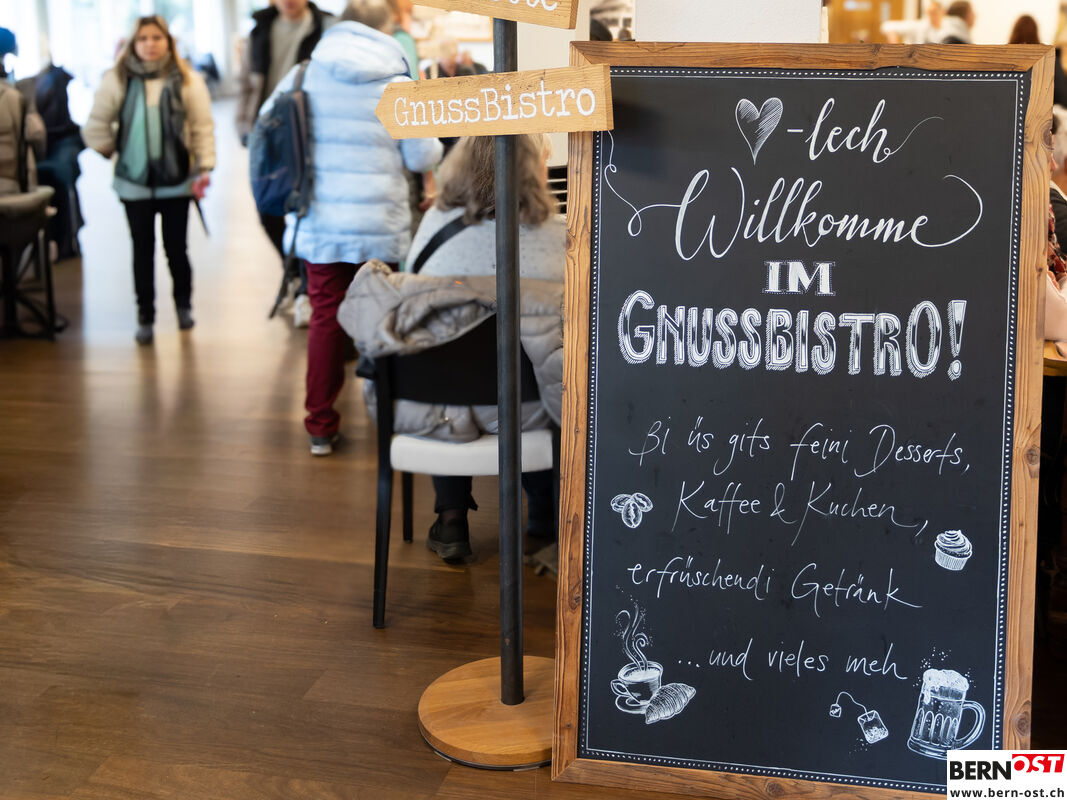 GnussBistro
-lech
Willkomme
IM
GNUSSBISTRO!
Bi üs gits feini Desserts,
Kaffee & Kuchen,
erfrüschendi Getränk
...und vieles meh
BERNOST
www.bern-ost.ch